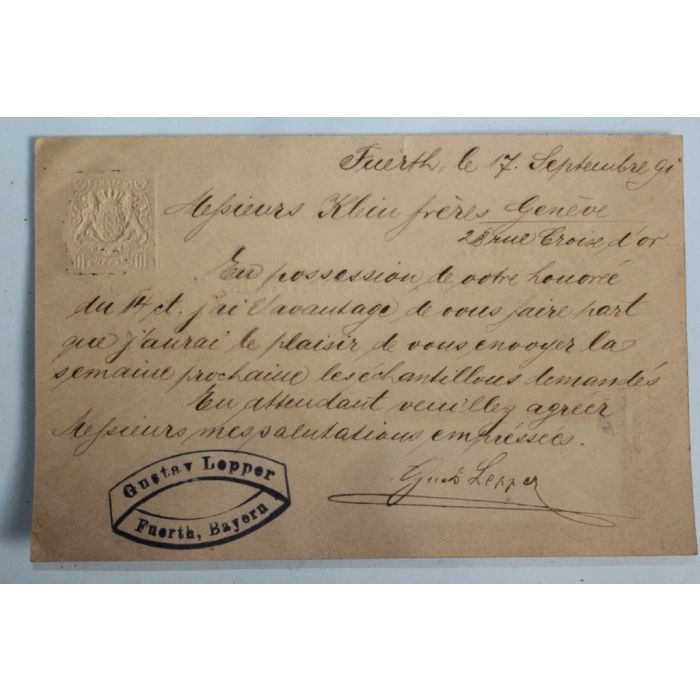 Fuerth, le 17. Septembre 91
Messieurs Klein frères Genève
28 rue Croise d'or
En possession de votre honorée
du 14 ct. j'ai l'avantage de vous faire part
que j'aurai le plaisir de vous envoyer la
semaine prochaine les échantillons demandés
En attendant veuillez agréer
Messieurs mes salutations empréssées.
Gust. Lepper
Gustav Lepper
Fuerth, Bayern